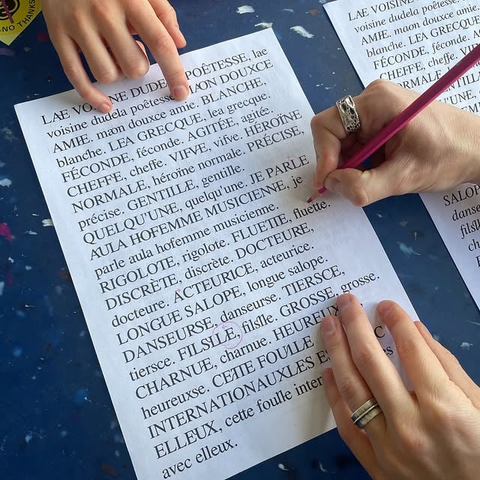 LAE VOISINE POÊTESSE, lae
voisine dudela DOUCE
AMIE. maon douce amie. BLANCHE,
blanche. LEA GRECQUE, lea grecque.
FÉCONDE, féconde. AGITÉE, agitée.
CHEFFE, cheffe. VIFVE, vifve. HÉROÏNE
NORMALE, héroïne normale. PRÉCISE,
précise. GENTILLE, gentille.
QUELQU'UNE, quelqu'une. JE PARLE
AULA HOFEMME MUSICIENNE, je
parle aula hofemme musicienne.
RIGOLOTE, rigolote. FLUETIE, fluette.
DISCRÈTE, discrète. DOCTEURE,
docteure. ACTEURICE, acteurice.
LONGUE SALOPE, longue salope.
DANSEURSE, danseurse. TIERSCE,
tiersce. FILSLLE, filslle. GROSSE, grosse.
CHARNUE, charnue.
heureuxse. CETTE FOULE
INTERNATIONAUXLES
ELLEUX, cette foule
avec elleux.
LAE VOISINE
voisine dudela
AMIE. maon
blanche. LEA
FÉCONDE, féconde.
CHEFFE, cheffe.
NORMALE
THANKS